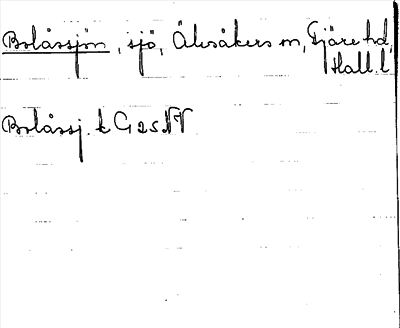 Bolåssjön, sjö, Älvsåkers sn, Fjäre hd,
Hall. l.
Bolåssj. k G 25 NV